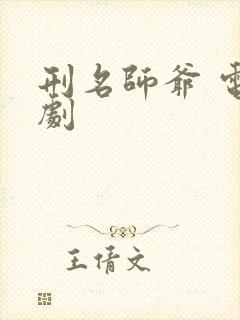 刑名師爺 電
劇
王倩文